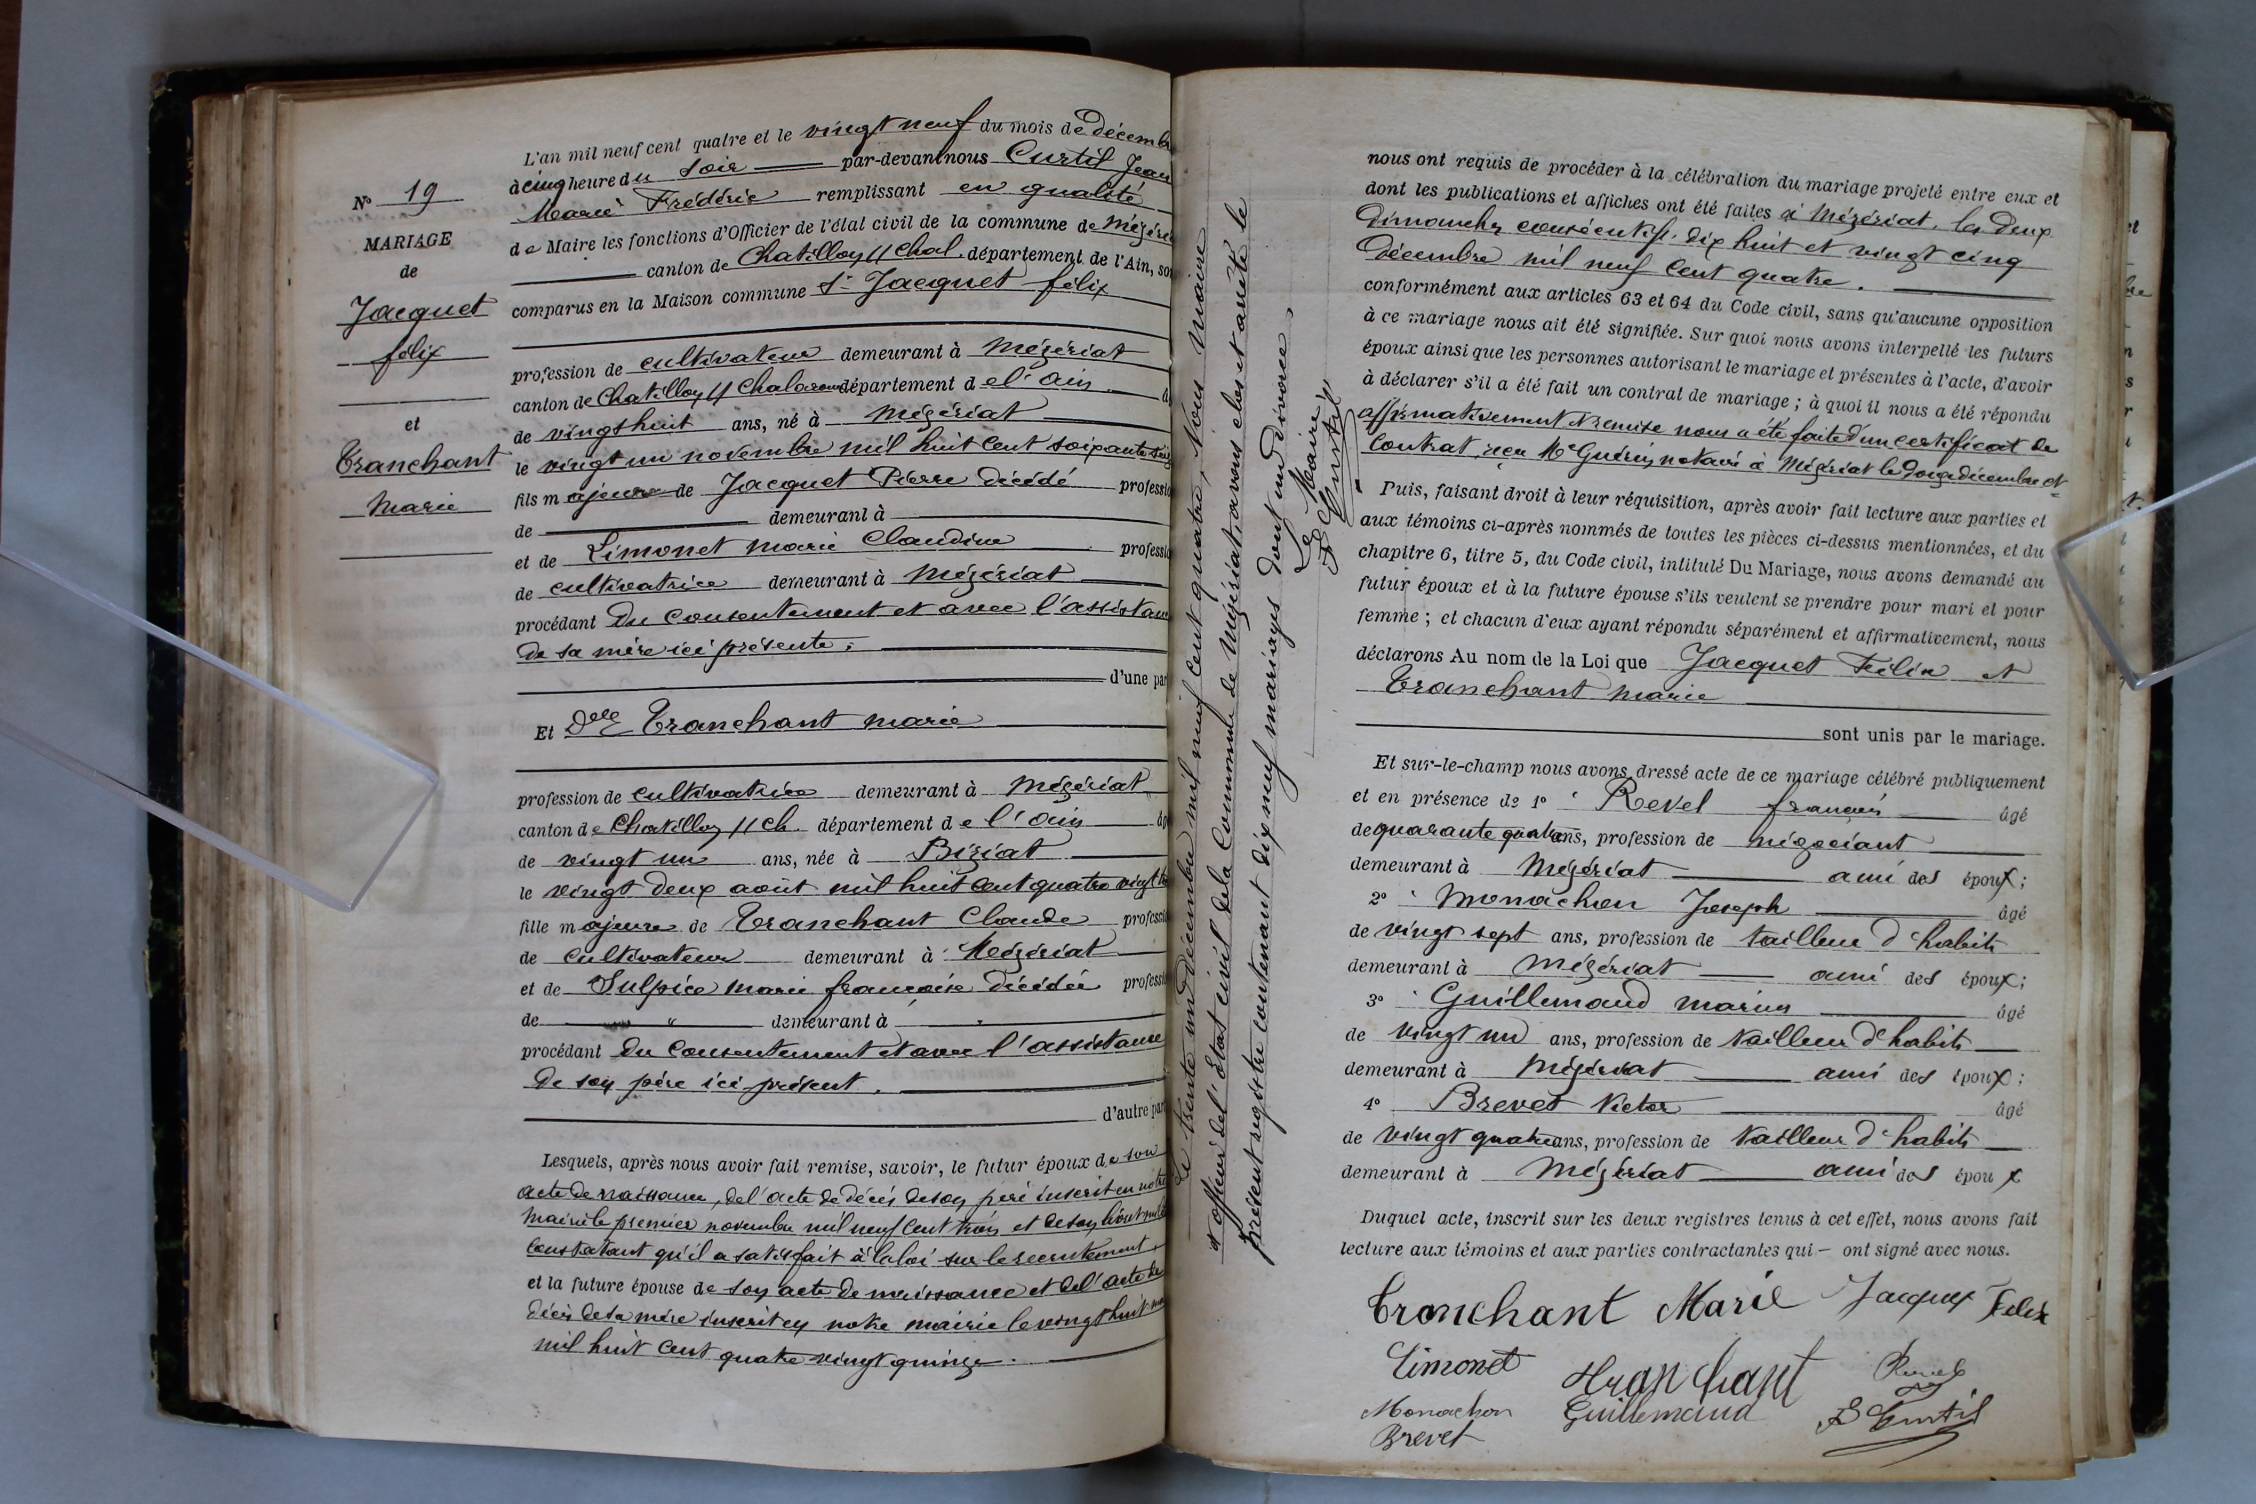 N° 19
MARIAGE
de
Jacquet
félix
et
Tranchant
Marie
L'an mil neuf cent quatre et le vingt neuf du mois de décemb
à cinq heure du soir par-devant nous Curtil Jean
Marie Frédéric remplissant en qualité
de Maire les fonctions d'Officier de l'état civil de la commune de Mézéri
canton de Chatillon // Chal. département de l'Ain, so
comparus en la Maison commune Sr Jacquet félix
profession de cultivateur demeurant à Mézériat
canton de Chatillon // Chalaronne département de l'ain
de vingt huit ans, né à Mézériat
le vingt un novembre mil huit cent soixante seiz
fils majeur de Jacquet Pierre décédé professio
de demeurant à
et de Limonet Marie Claudine professi
de cultivatrice demeurant à Mézériat
procédant du consentement et avec l'assistan
de sa mère ici présente ;
d'une par
Et Delle Tranchant Marie
profession de cultivatrice demeurant à Mézériat
canton de Chatillon // Ch. département de l'ain âg
de vingt un ans, née à Biziat
le vingt deux août mil huit cent quatre vingt tr
fille majeure de Tranchant Claude professio
de cultivateur demeurant à Mézériat
et de Sulpice Marie françoise décédée professi
de " demeurant à "
procédant du consentement et avec l'assistance
de son père ici présent.
d'autre part
Lesquels, après nous avoir fait remise, savoir, le futur époux de son
acte de naissance, de l'acte de décès de son père inscrit en notre
mairie le premier novembre mil neuf cent trois et de son livret
constatant qu'il a satisfait à la loi sur le recrutement,
et la future épouse de son acte de naissance et de l'acte de
décès de sa mère inscrit en notre mairie le vingt huit
mil huit cent quatre vingt quinze.
Le trente un décembre mil neuf cent quatre, Nous Maire
et officier de l'Etat civil de la Commune de Mézériat, avons clos et arrêté le
présent registre contenant dix neuf mariages dont un divorce,
Le Maire
F Curtil
nous ont requis de procéder à la célébration du mariage projeté entre eux et
dont les publications et affiches ont été faites à Mézériat, les deux
dimanches consécutifs, dix huit et vingt cinq
décembre mil neuf cent quatre.
conformément aux articles 63 et 64 du Code civil, sans qu'aucune opposition
à ce mariage nous ait été signifiée. Sur quoi nous avons interpellé les futurs
époux ainsi que les personnes autorisant le mariage et présentes à l'acte, d'avoir
à déclarer s'il a été fait un contrat de mariage ; à quoi il nous a été répondu
affirmativement et remise nous a été faite d'un certificat de
contrat, reçu Me Guérin notaire à Mézériat le douze décembre et
Puis, faisant droit à leur réquisition, après avoir fait lecture aux parties et
aux témoins ci-après nommés de toutes les pièces ci-dessus mentionnées, et du
chapitre 6, titre 5, du Code civil, intitulé Du Mariage, nous avons demandé au
futur époux et à la future épouse s'ils veulent se prendre pour mari et pour
femme ; et chacun d'eux ayant répondu séparément et affirmativement, nous
déclarons Au nom de la Loi que Jacquet Félix et
Tranchant Marie
sont unis par le mariage.
Et sur-le-champ nous avons dressé acte de ce mariage célébré publiquement
et en présence de 1° Revel françois âgé
de quarante quatre ans, profession de négociant
demeurant à Mézériat ami des époux ;
2° Monachon Joseph âgé
de vingt sept ans, profession de tailleur d'habits
demeurant à Mézériat ami des époux ;
3° Guillemaud Marius âgé
de vingt un ans, profession de tailleur d'habits
demeurant à Mézériat ami des époux ;
4° Brevet Victor âgé
de vingt quatre ans, profession de tailleur d'habits
demeurant à Mézériat ami des époux
Duquel acte, inscrit sur les deux registres tenus à cet effet, nous avons fait
lecture aux témoins et aux parties contractantes qui – ont signé avec nous.
Tranchant Marie Jacquet Felix
Limonet Tranchant Revel
Monachon Guillemaud F Curtil
Brevet